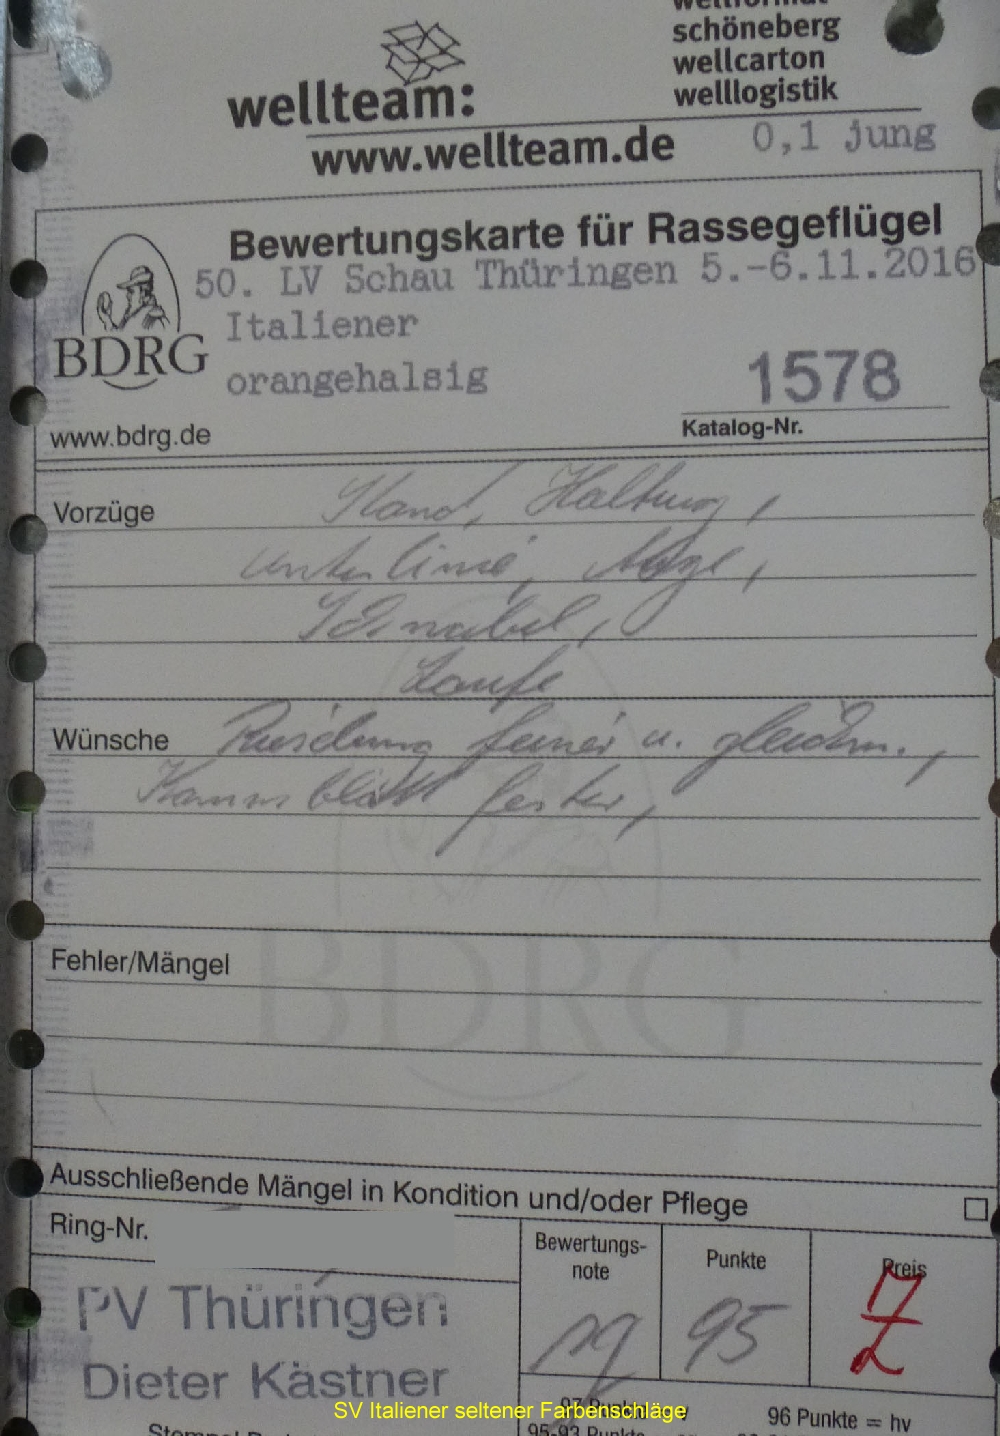 wellformat
schöneberg
wellcarton
welllogistik
wellteam:
www.wellteam.de
0,1 jung
Bewertungskarte für Rassegeflügel
50. LV Schau Thüringen 5.-6.11.2016
Italiener
BDRG
orangehalsig
1578
www.bdrg.de
Katalog-Nr.
Vorzüge Stand, Haltung,
Unterlinie, Auge,
Schnabel,
Läufe
Wünsche feiner u. gleichm.,
Kammblatt fester,
BDRG
Fehler/Mängel
Ausschließende Mängel in Kondition und/oder Pflege
Ring-Nr.
Bewertungs-
note
Punkte
Preis
sg
95
Z
PV Thüringen
Dieter Kästner
SV Italiener seltener Farbenschläge
96 Punkte = hv
95-93 Punkte